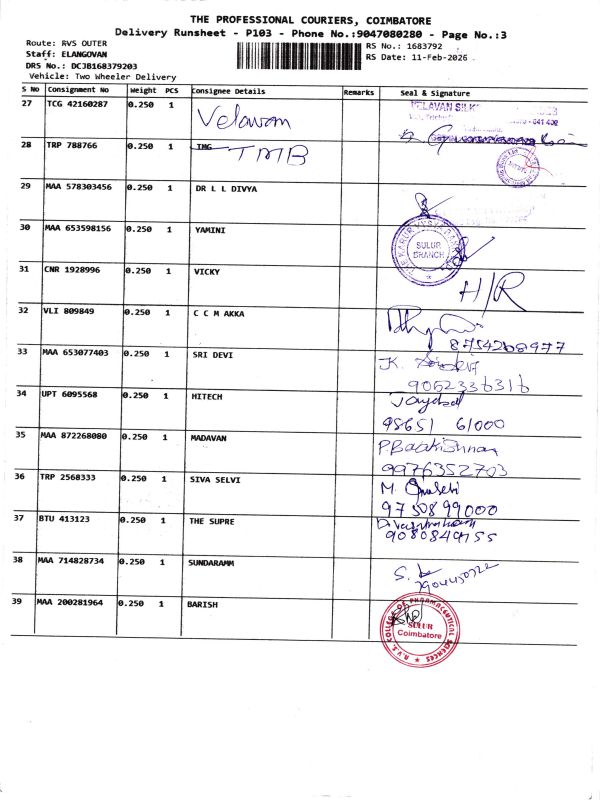 THE PROFESSIONAL COURIERS, COIMBATORE
Delivery Runsheet - P103 - Phone No.:9047080280 - Page No.:3
Route: RVS OUTER
Staff: ELANGOVAN
DRS No.: DCJB168379203
Vehicle: Two Wheeler Delivery
RS No.: 1683792
RS Date: 11-Feb-2026
S No Consignment No Weight PCS Consignee Details Remarks Seal & Signature
27 TCG 42160287 0.250 1 Velavan VELAVAN SILKS
28 TRP 788766 0.250 1 TMG TMB
29 MAA 578303456 0.250 1 DR L L DIVYA
30 MAA 653598156 0.250 1 YAMINI SULUR BRANCH
31 CNR 1928996 0.250 1 VICKY H/R
32 VLI 809849 0.250 1 C C M AKKA 8754268977
33 MAA 653077403 0.250 1 SRI DEVI 9052336316
34 UPT 6095568 0.250 1 HITECH 95651 61000
35 MAA 872268080 0.250 1 MADAVAN P. Balakrishnan 9976352703
36 TRP 2568333 0.250 1 SIVA SELVI 9750899000
37 BTU 413123 0.250 1 THE SUPRE
38 MAA 714828734 0.250 1 SUNDARAMM
39 MAA 200281964 0.250 1 BARISH R.V.S. COLLEGE OF PHARMACEUTICAL SCIENCES SULUR Coimbatore